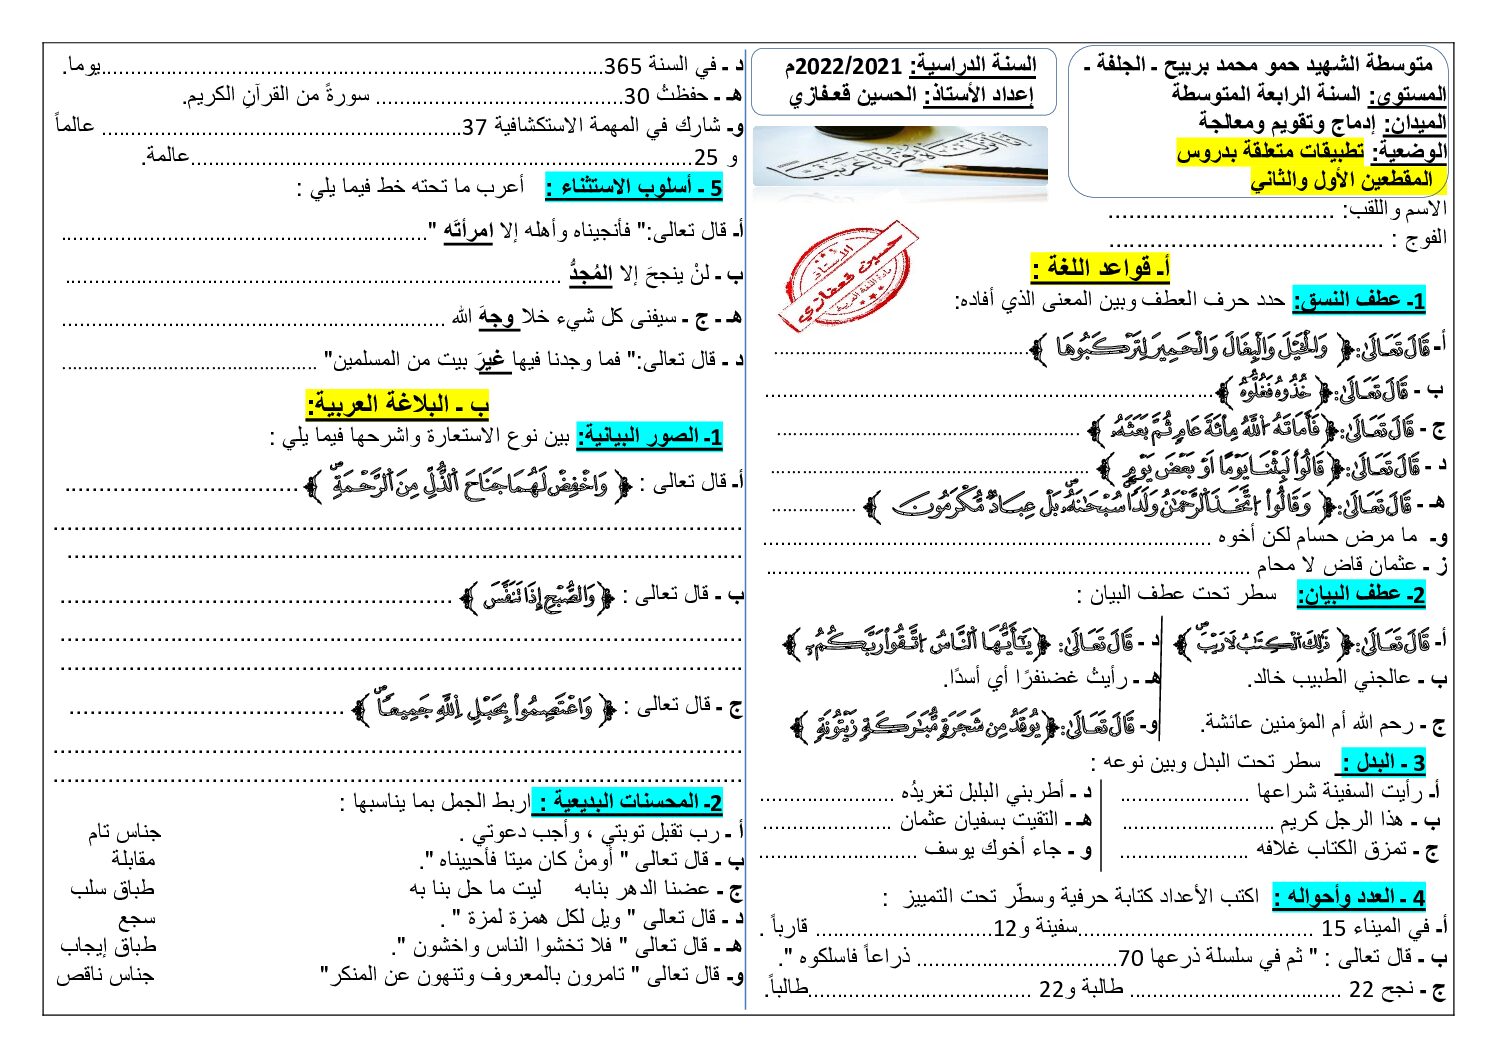 متوسطة الشهيد حمو محمد بربيح ـ الجلفة ـ
المستوى: السنة الرابعة المتوسطة
الميدان: إدماج وتقويم ومعالجة
الوضعية: تطبيقات متعلقة بدروس
المقطعين الأول والثاني
السنة الدراسية: 2022/2021م
إعداد الأستاذ: الحسين قعفازي
الاسم واللقب: .................................
الفوج : .......................................
الأستاذ
حسين قعفازي
مادة اللغة العربية
أـ قواعد اللغة :
1ـ عطف النسق: حدد حرف العطف وبين المعنى الذي أفاده:
أ- قَالَ تَعَالَىٰ: ﴿ وَالْخَيْلَ وَالْبِغَالَ وَالْحَمِيرَ لِتَرْكَبُوهَا ﴾ ..........................................
ب - قَالَ تَعَالَىٰ: ﴿ خُذُوهُ فَغُلُّوهُ ﴾ ..........................................
ج - قَالَ تَعَالَىٰ: ﴿ فَأَمَاتَهُ اللَّهُ مِائَةَ عَامٍ ثُمَّ بَعَثَهُ ﴾ ..........................................
د - قَالَ تَعَالَىٰ: ﴿ قَالُوا لَبِثْنَا يَوْمًا أَوْ بَعْضَ يَوْمٍ ﴾ ..........................................
هـ - قَالَ تَعَالَىٰ: ﴿ وَقَالُوا اتَّخَذَ الرَّحْمَٰنُ وَلَدًا سُبْحَانَهُ بَلْ عِبَادٌ مُّكْرَمُونَ ﴾ ...............
و- ما مرض حسام لكن أخوه ..........................................
ز ـ عثمان قاض لا محام ..........................................
2ـ عطف البيان: سطر تحت عطف البيان :
أ- قَالَ تَعَالَىٰ: ﴿ ذَٰلِكَ الْكِتَابُ لَا رَيْبَ ﴾
ب ـ عالجني الطبيب خالد.
ج ـ رحم الله أم المؤمنين عائشة.
د - قَالَ تَعَالَىٰ: ﴿ يَا أَيُّهَا النَّاسُ اتَّقُوا رَبَّكُمُ ﴾
هـ ـ رأيتُ غضنفرًا أي أسدًا.
و- قَالَ تَعَالَىٰ: ﴿ يُوقَدُ مِن شَجَرَةٍ مُّبَارَكَةٍ زَيْتُونَةٍ ﴾
3 ـ البدل : سطر تحت البدل وبين نوعه :
أـ رأيت السفينة شراعها .....................
ب ـ هذا الرجل كريم .........................
ج ـ تمزق الكتاب غلافه .....................
د ـ أطربني البلبل تغريدُه ......................
هـ ـ التقيت بسفيان عثمان .....................
و ـ جاء أخوك يوسف ..........................
4 ـ العدد وأحواله : اكتب الأعداد كتابة حرفية وسطّر تحت التمييز :
أـ في الميناء 15 .......................................سفينة و12............................. قارباً .
ب ـ قال تعالى : " ثم في سلسلة ذرعها 70................................. ذراعاً فاسلكوه ".
ج ـ نجح 22 ................................... طالبة و22 .....................................طالباً.
د ـ في السنة 365....................................................................................يوما.
هـ ـ حفظتُ 30.......................................... سورةً من القرآنِ الكريم.
و- شارك في المهمة الاستكشافية 37............................................................. عالماً
و 25 ..........................................................................................عالمة.
5 ـ أسلوب الاستثناء : أعرب ما تحته خط فيما يلي :
أـ قال تعالى:" فأنجيناه وأهله إلا امرأتَه "..............................................................
ب ـ لنْ ينجحَ إلا المُجدُّ ....................................................................................
هـ ـ ج ـ سيفنى كل شيء خلا وجهَ الله .................................................................
د ـ قال تعالى:" فما وجدنا فيها غيرَ بيت من المسلمين" ...............................................
ب ـ البلاغة العربية:
1ـ الصور البيانية: بين نوع الاستعارة واشرحها فيما يلي :
أـ قال تعالى : ﴿ وَاخْفِضْ لَهُمَا جَنَاحَ الذُّلِّ مِنَ الرَّحْمَةِ ﴾ ..................................
....................................................................................................
....................................................................................................
ب ـ قال تعالى : ﴿ وَالصُّبْحِ إِذَا تَنَفَّسَ ﴾ .........................................................
....................................................................................................
....................................................................................................
ج ـ قال تعالى : ﴿ وَاعْتَصِمُوا بِحَبْلِ اللَّهِ جَمِيعًا ﴾ ........................................
....................................................................................................
....................................................................................................
2ـ المحسنات البديعية : اربط الجمل بما يناسبها :
أ ـ رب تقبل توبتي ، وأجب دعوتي . جناس تام
ب ـ قال تعالى " أومنْ كان ميتا فأحييناه ". مقابلة
ج ـ عضنا الدهر بنابه ليت ما حل بنا به طباق سلب
د ـ قال تعالى " ويل لكل همزة لمزة ". سجع
هـ ـ قال تعالى " فلا تخشوا الناس واخشون ". طباق إيجاب
و- قال تعالى " تامرون بالمعروف وتنهون عن المنكر" جناس ناقص